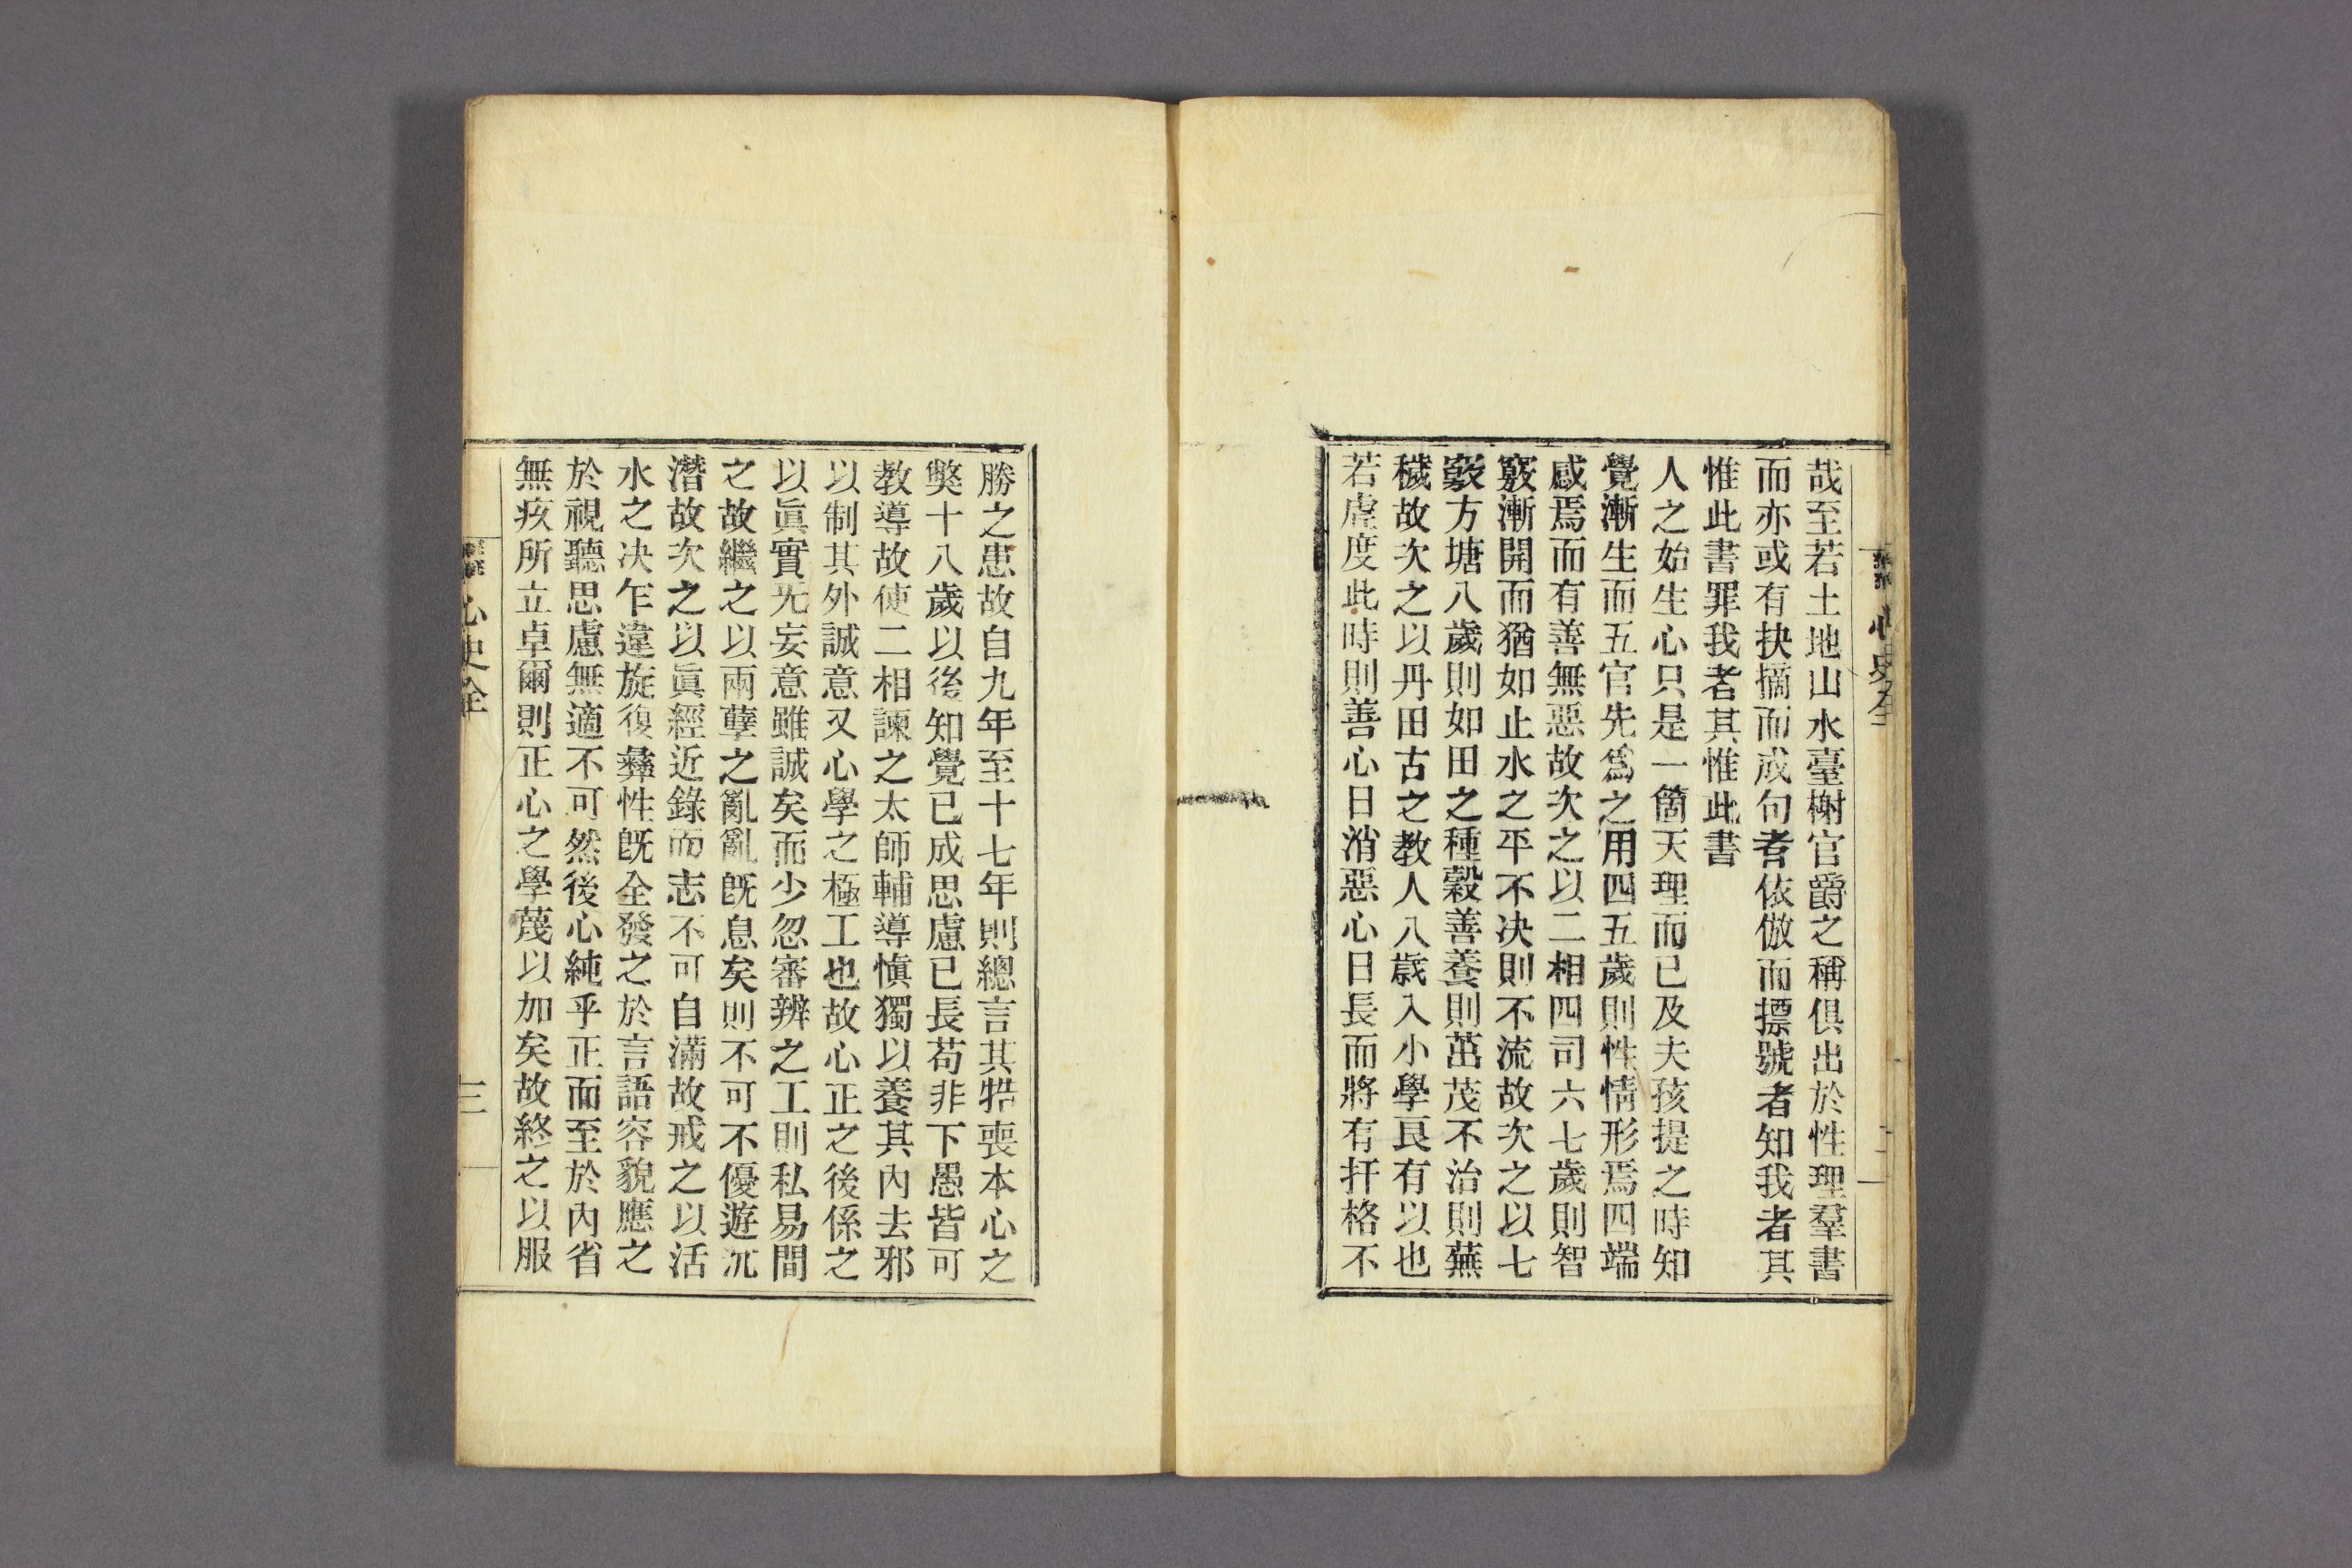 心史全
二
哉至若土地山水臺榭官爵之稱俱出於性理羣書
而亦或有抉摘而成句者依倣而摽號者知我者其
惟此書罪我者其惟此書
人之始生心只是一箇天理而已及夫孩提之時知
覺漸生而五官先爲之用四五歲則性情形焉四端
感焉而有善無惡故次之以二相四司六七歲則智
竅漸開而猶如止水之平不决則不流故次之以七
竅方塘八歲則如田之種糓善養則茁茂不治則蕪
穢故次之以丹田古之教人八歲入小學良有以也
若虛度此時則善心日消惡心日長而將有扞格不
勝之患故自九年至十七年則總言其牿喪本心之
獘十八歲以後知覺已成思慮已長苟非下愚皆可
教導故使二相諫之太師輔導愼獨以養其內去邪
以制其外誠意又心學之極工也故心正之後係之
以眞實无妄意雖誠矣而少忽審辨之工則私易間
之故繼之以兩孽之亂亂旣息矣則不可不優遊沉
潛故次之以眞經近錄而志不可自滿故戒之以活
水之决乍違旋復彝性旣全發之於言語容貌應之
於視聽思慮無適不可然後心純乎正而至於內省
無疚所立卓爾則正心之學蔑以加矣故終之以服
心史全
三